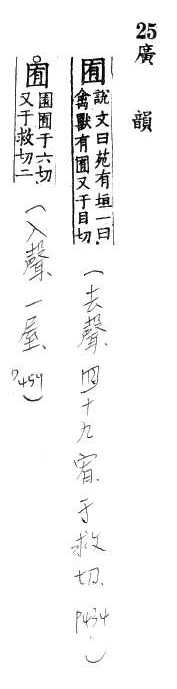 25
廣韻
囿 說文曰苑有垣一曰
禽獸有囿又于目切
(去聲、四十九宥、于救切、P434.)
囿 園囿于六切、
又于救切二
(入聲、一屋、P454)